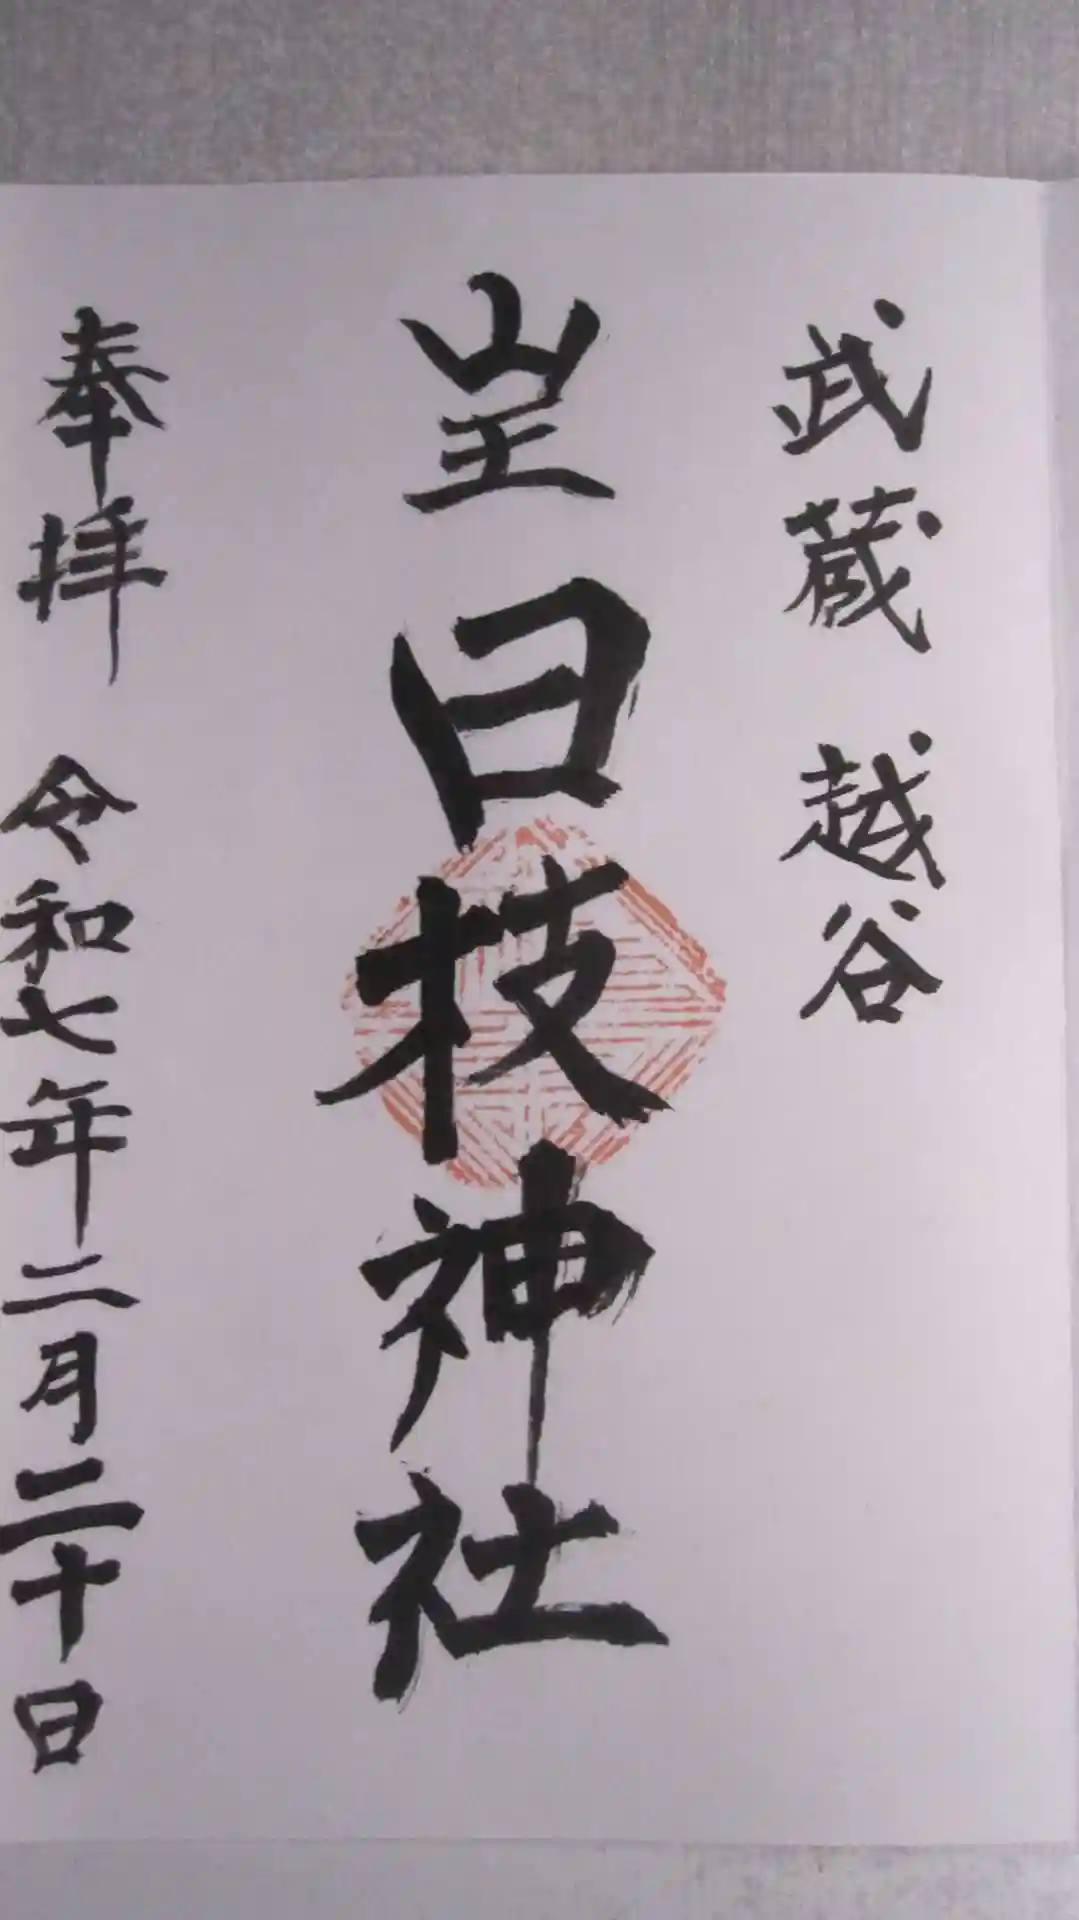 武蔵 越谷
山王 日枝神社
奉拝 令和七年二月二十日